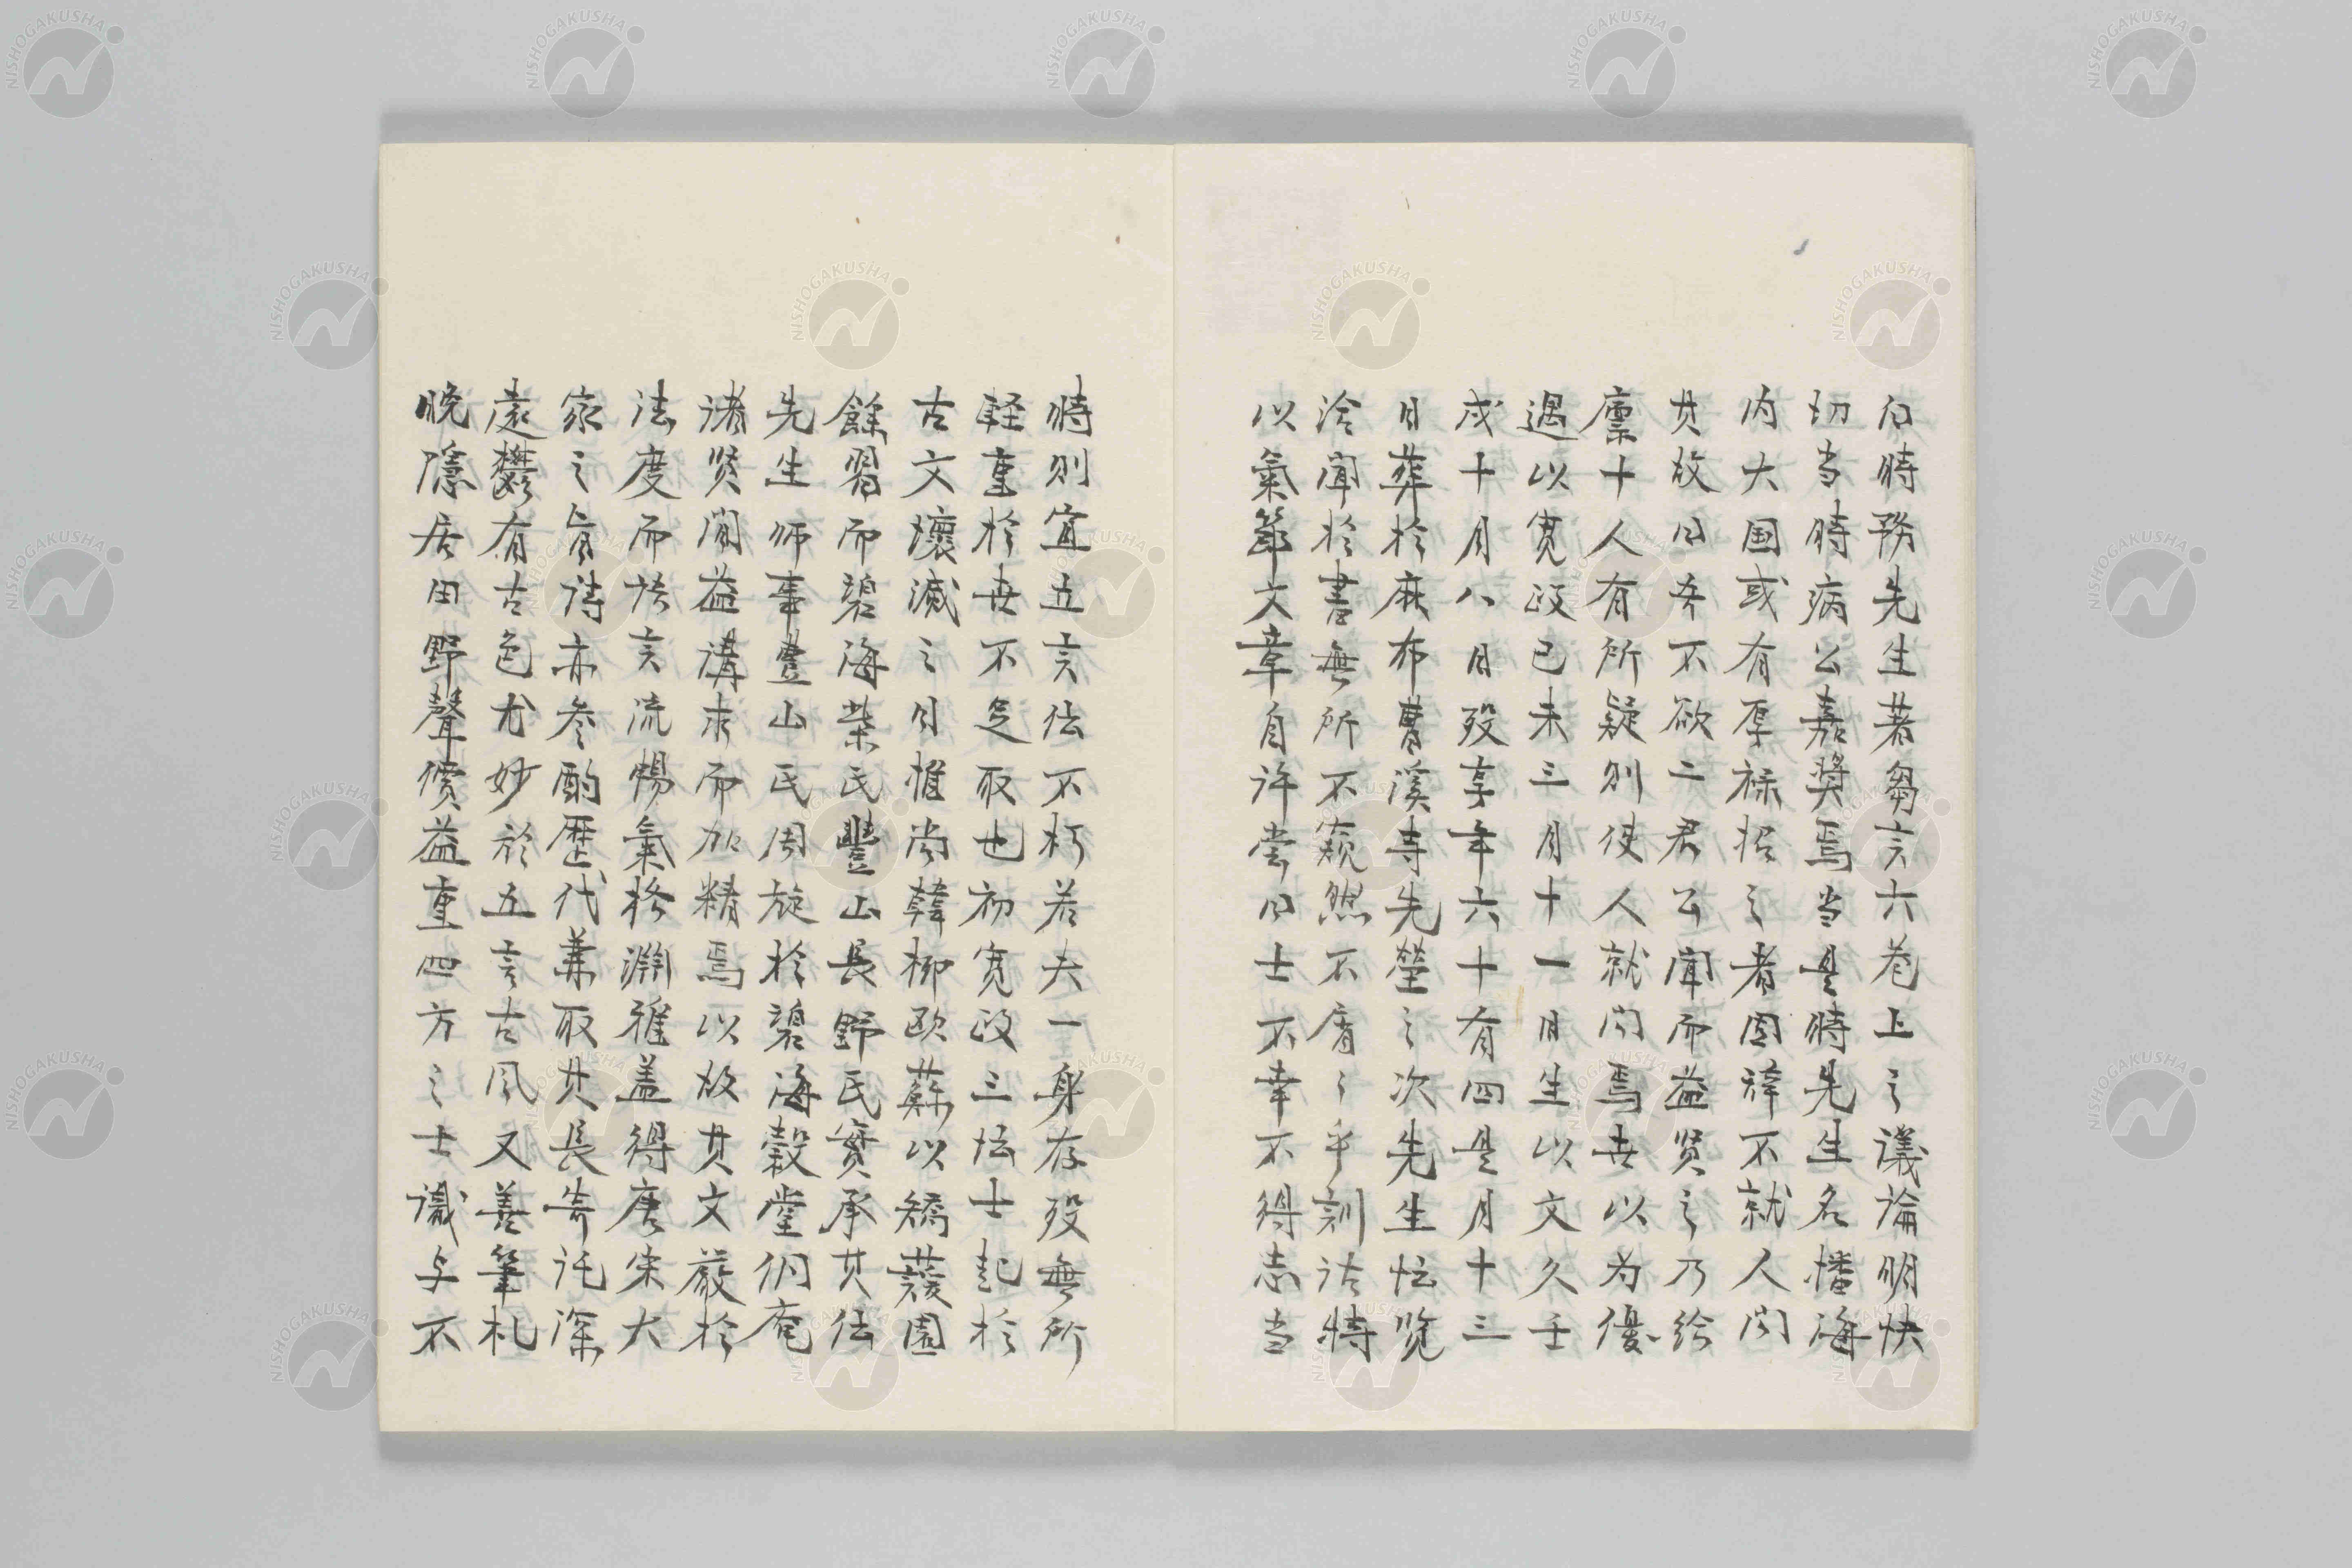 白時務先生著芻言六巻上之議論明快
切当時病公嘉奨焉当是時先生名播海
内大国或有厚禄招之者固辞不就人問
其故曰吾不欲二君公聞而益賢之乃給
廩十人有所疑則使人就問焉世以為優
遇以寛政己未三月十一日生以文久壬
戌十月八日歿享年六十有四是月十三
日葬於麻布曹溪寺先塋之次先生忼
洽聞於書無所不窺然不屑々乎訓詁特
以氣節文章自許嘗曰士不幸不得志当
時則宜立言伝不朽若夫一身存歿無所
軽重於世不足取也初寛政三忼士起於
古文壞滅之日惟尚韓柳欧蘇以矯蘐園
餘習而碧海柴氏豐山長野氏實承其伝
先生师事豐山氏周旋於碧海穀堂侗庵
諸賢間益講求而加精焉以故其文嚴於
法度而措言流暢氣格淵雅盖得唐宋大
家之旨詩亦参酌歴代兼取其長寄託深
遠欝有古色尤妙於五言古風又善筆札
晩隱居田野聲價益重四方之士識与不